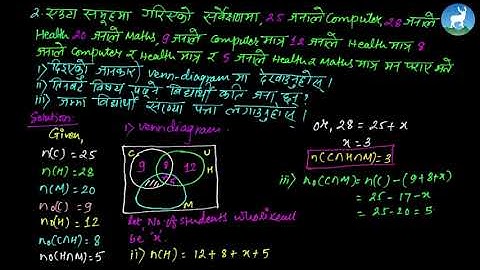 2. एउटा समूहमा गरिएको सर्वेक्षणमा, 25 जनाले Computer, 28 जनाले
Health 20 जनाले Maths, 9 जनाले Computer मात्र 12 जनाले Health मात्र 8
जनाले Computer र Health मात्र र 5 जनाले Health र Maths मात्र मन पराए भने
i) दिइएको जानकारी venn-diagram मा देखाउनुहोस् ।
ii) तिनवटै विषय पढ्ने विद्यार्थी कति जना छन् ?
iii) जम्मा विद्यार्थी संख्या पत्ता लगाउनुहोस् ।
Solution:
Given,
n(C) = 25
n(H) = 28
n(M) = 20
n₀(C) = 9
n₀(H) = 12
n₀(C∩H) = 8
n₀(H∩M) = 5
i) venn-diagram.
C U
H
9 8 12
x 5
M
let No. of students who like all
be 'x'.
ii) n(H) = 12 + 8 + x + 5
or, 28 = 25 + x
x = 3
n(C∩H∩M) = 3
iii) n₀(C∩M) = n(C) - (9+8+x)
= 25 - 17 - x
= 25 - 20 = 5